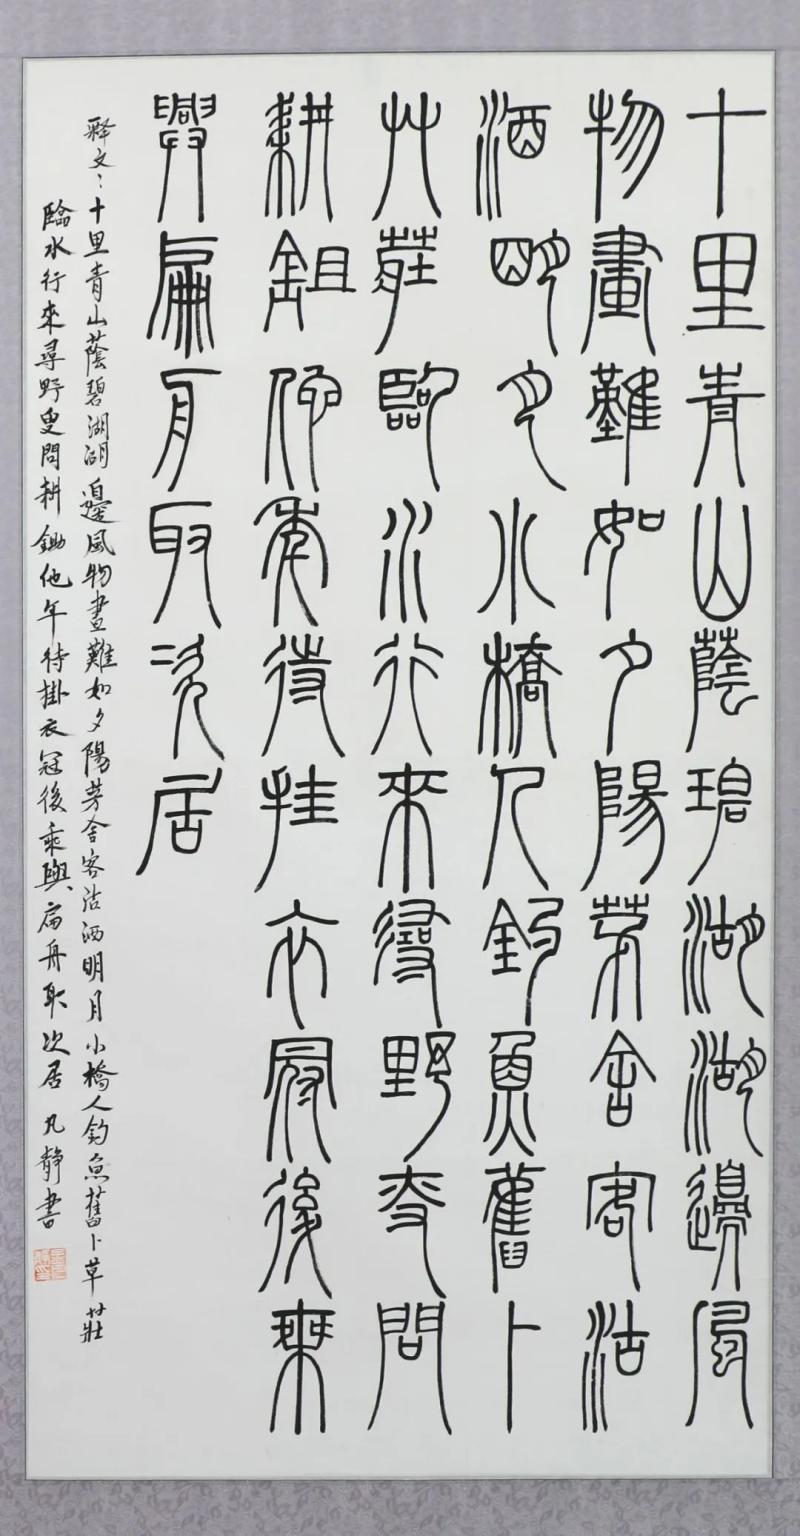 十里青山蔭碧湖湖邊風
物畫難如夕陽茅舍客沽
酒明月小橋人釣魚舊卜
艸莊臨水行來尋野叟問
耕鉏他年待挂衣冠後乘
興扁舟取次居
释文：十里青山蔭碧湖湖邊風物畫難如夕陽茅舍客沽酒明月小橋人釣魚舊卜草莊
臨水行來尋野叟問耕鋤他年待掛衣冠後乘興扁舟取次居 凡靜書